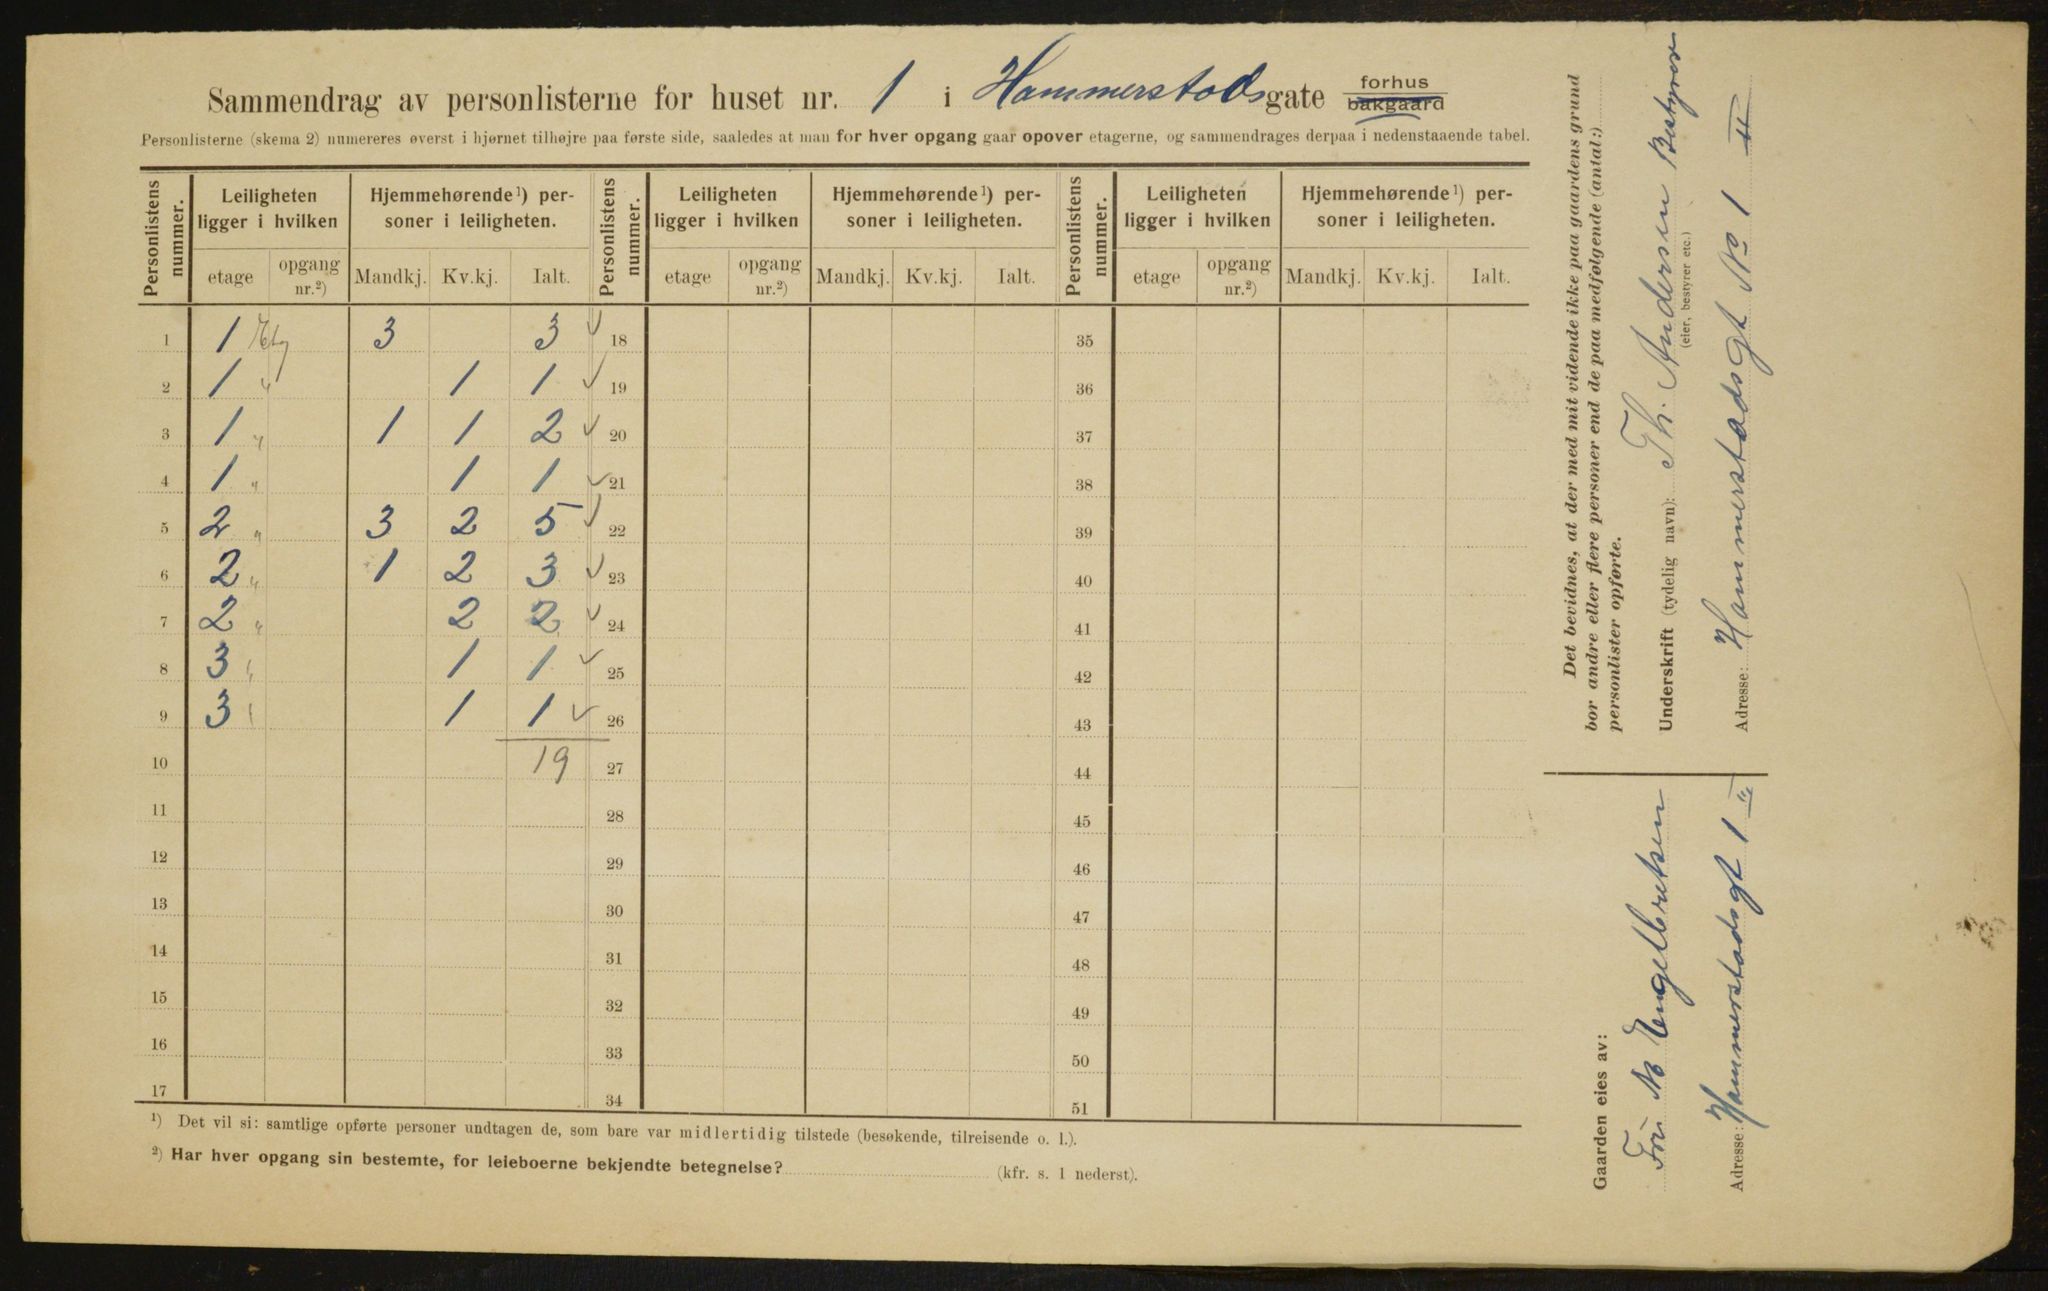 Sammendrag av personlisterne for huset nr. 1 i Hammerstadsgate forhus
bakgaard
Personlisterne (skema 2) numereres øverst i hjørnet tilhøjre paa første side, saaledes at man for hver opgang gaar opover etagerne, og sammendrages derpaa i nedenstaaende tabel.
Personlistens nummer. Leiligheten ligger i hvilken Hjemmehørende ¹) personer i leiligheten. Personlistens nummer. Leiligheten ligger i hvilken Hjemmehørende ¹) personer i leiligheten. Personlistens nummer. Leiligheten ligger i hvilken Hjemmehørende ¹) personer i leiligheten.
etage opgang nr.²) Mandkj. Kv.kj. Ialt. etage opgang nr.²) Mandkj. Kv.kj. Ialt. etage opgang nr.²) Mandkj. Kv.kj. Ialt.
1 1 Etg 3 3 ✓ 18 35
2 1 " 1 1 ✓ 19 36
3 1 " 1 1 2 ✓ 20 37
4 1 " 1 1 ✓ 21 38
5 2 " 3 2 5 ✓ 22 39
6 2 " 1 2 3 ✓ 23 40
7 2 " 2 2 ✓ 24 41
8 3 " 1 1 ✓ 25 42
9 3 " 1 1 ✓ 26 43
10 19 27 44
11 28 45
12 29 46
13 30 47
14 31 48
15 32 49
16 33 50
17 34 51
¹) Det vil si: samtlige opførte personer undtagen de, som bare var midlertidig tilstede (besøkende, tilreisende o. l.).
²) Har hver opgang sin bestemte, for leieboerne bekjendte betegnelse? (kfr. s. 1 nederst).
Det bevidnes, at der med mit vidende ikke paa gaardens grund
bor andre eller flere personer end de paa medfølgende (antal:)
personlister opførte.
Underskrift (tydelig navn): Th. Andersen Bestyrer
(eier, bestyrer etc.)
Adresse: Hammerstadsgt No 1 II
Gaarden eies av:
Engelbretsen
Adresse: Hammerstadsgt 1